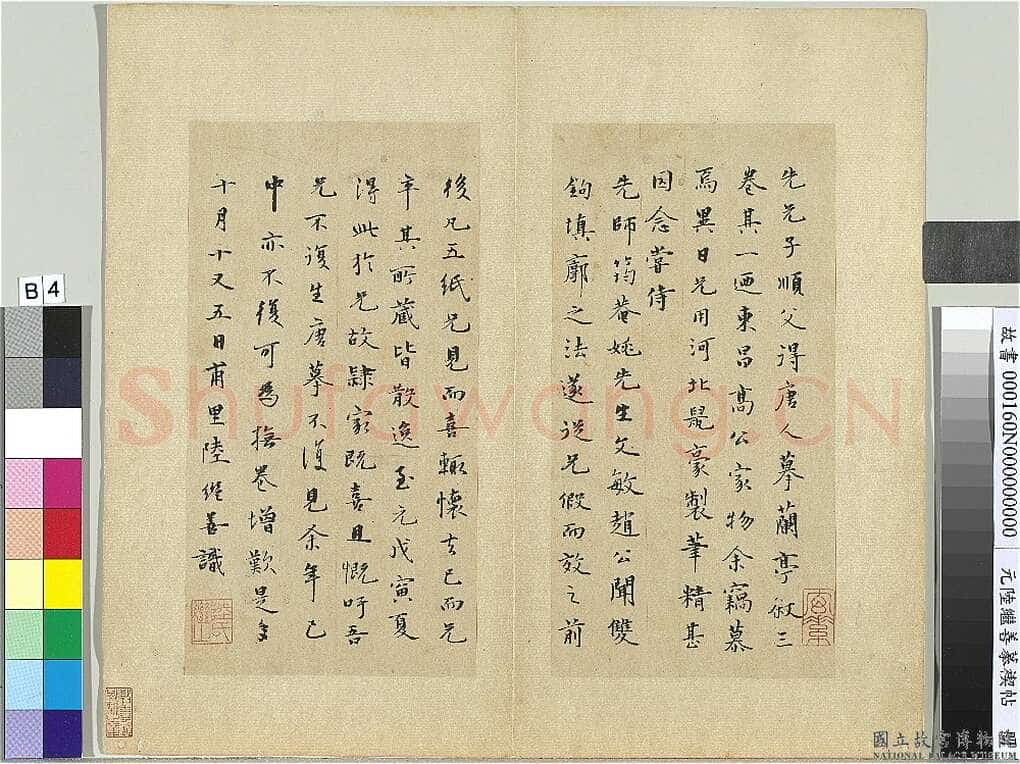 先兄子順父得唐人摹蘭亭敘三
卷其一迺東昌高公家物余竊慕
焉異日兄用河北鼠豪製筆精甚
因念嘗侍
先師筠菴姚先生文敏趙公聞雙
鉤填廓之法遂從兄假而效之前
後凡五紙兄見而喜輒懷去已而兄
卒其所藏皆散逸至元戊寅夏
得此於兄故隸家既喜且慨吁吾
兄不復生唐摹不復見余年已
中亦不復可為撫卷增歎是年
十月十又五日甫里陸繼善識
B4
故書 000160N000000000
元陸繼善摹禊帖
國立故宮博物院
NATIONAL PALACE MUSEUM
Shufawang.CN